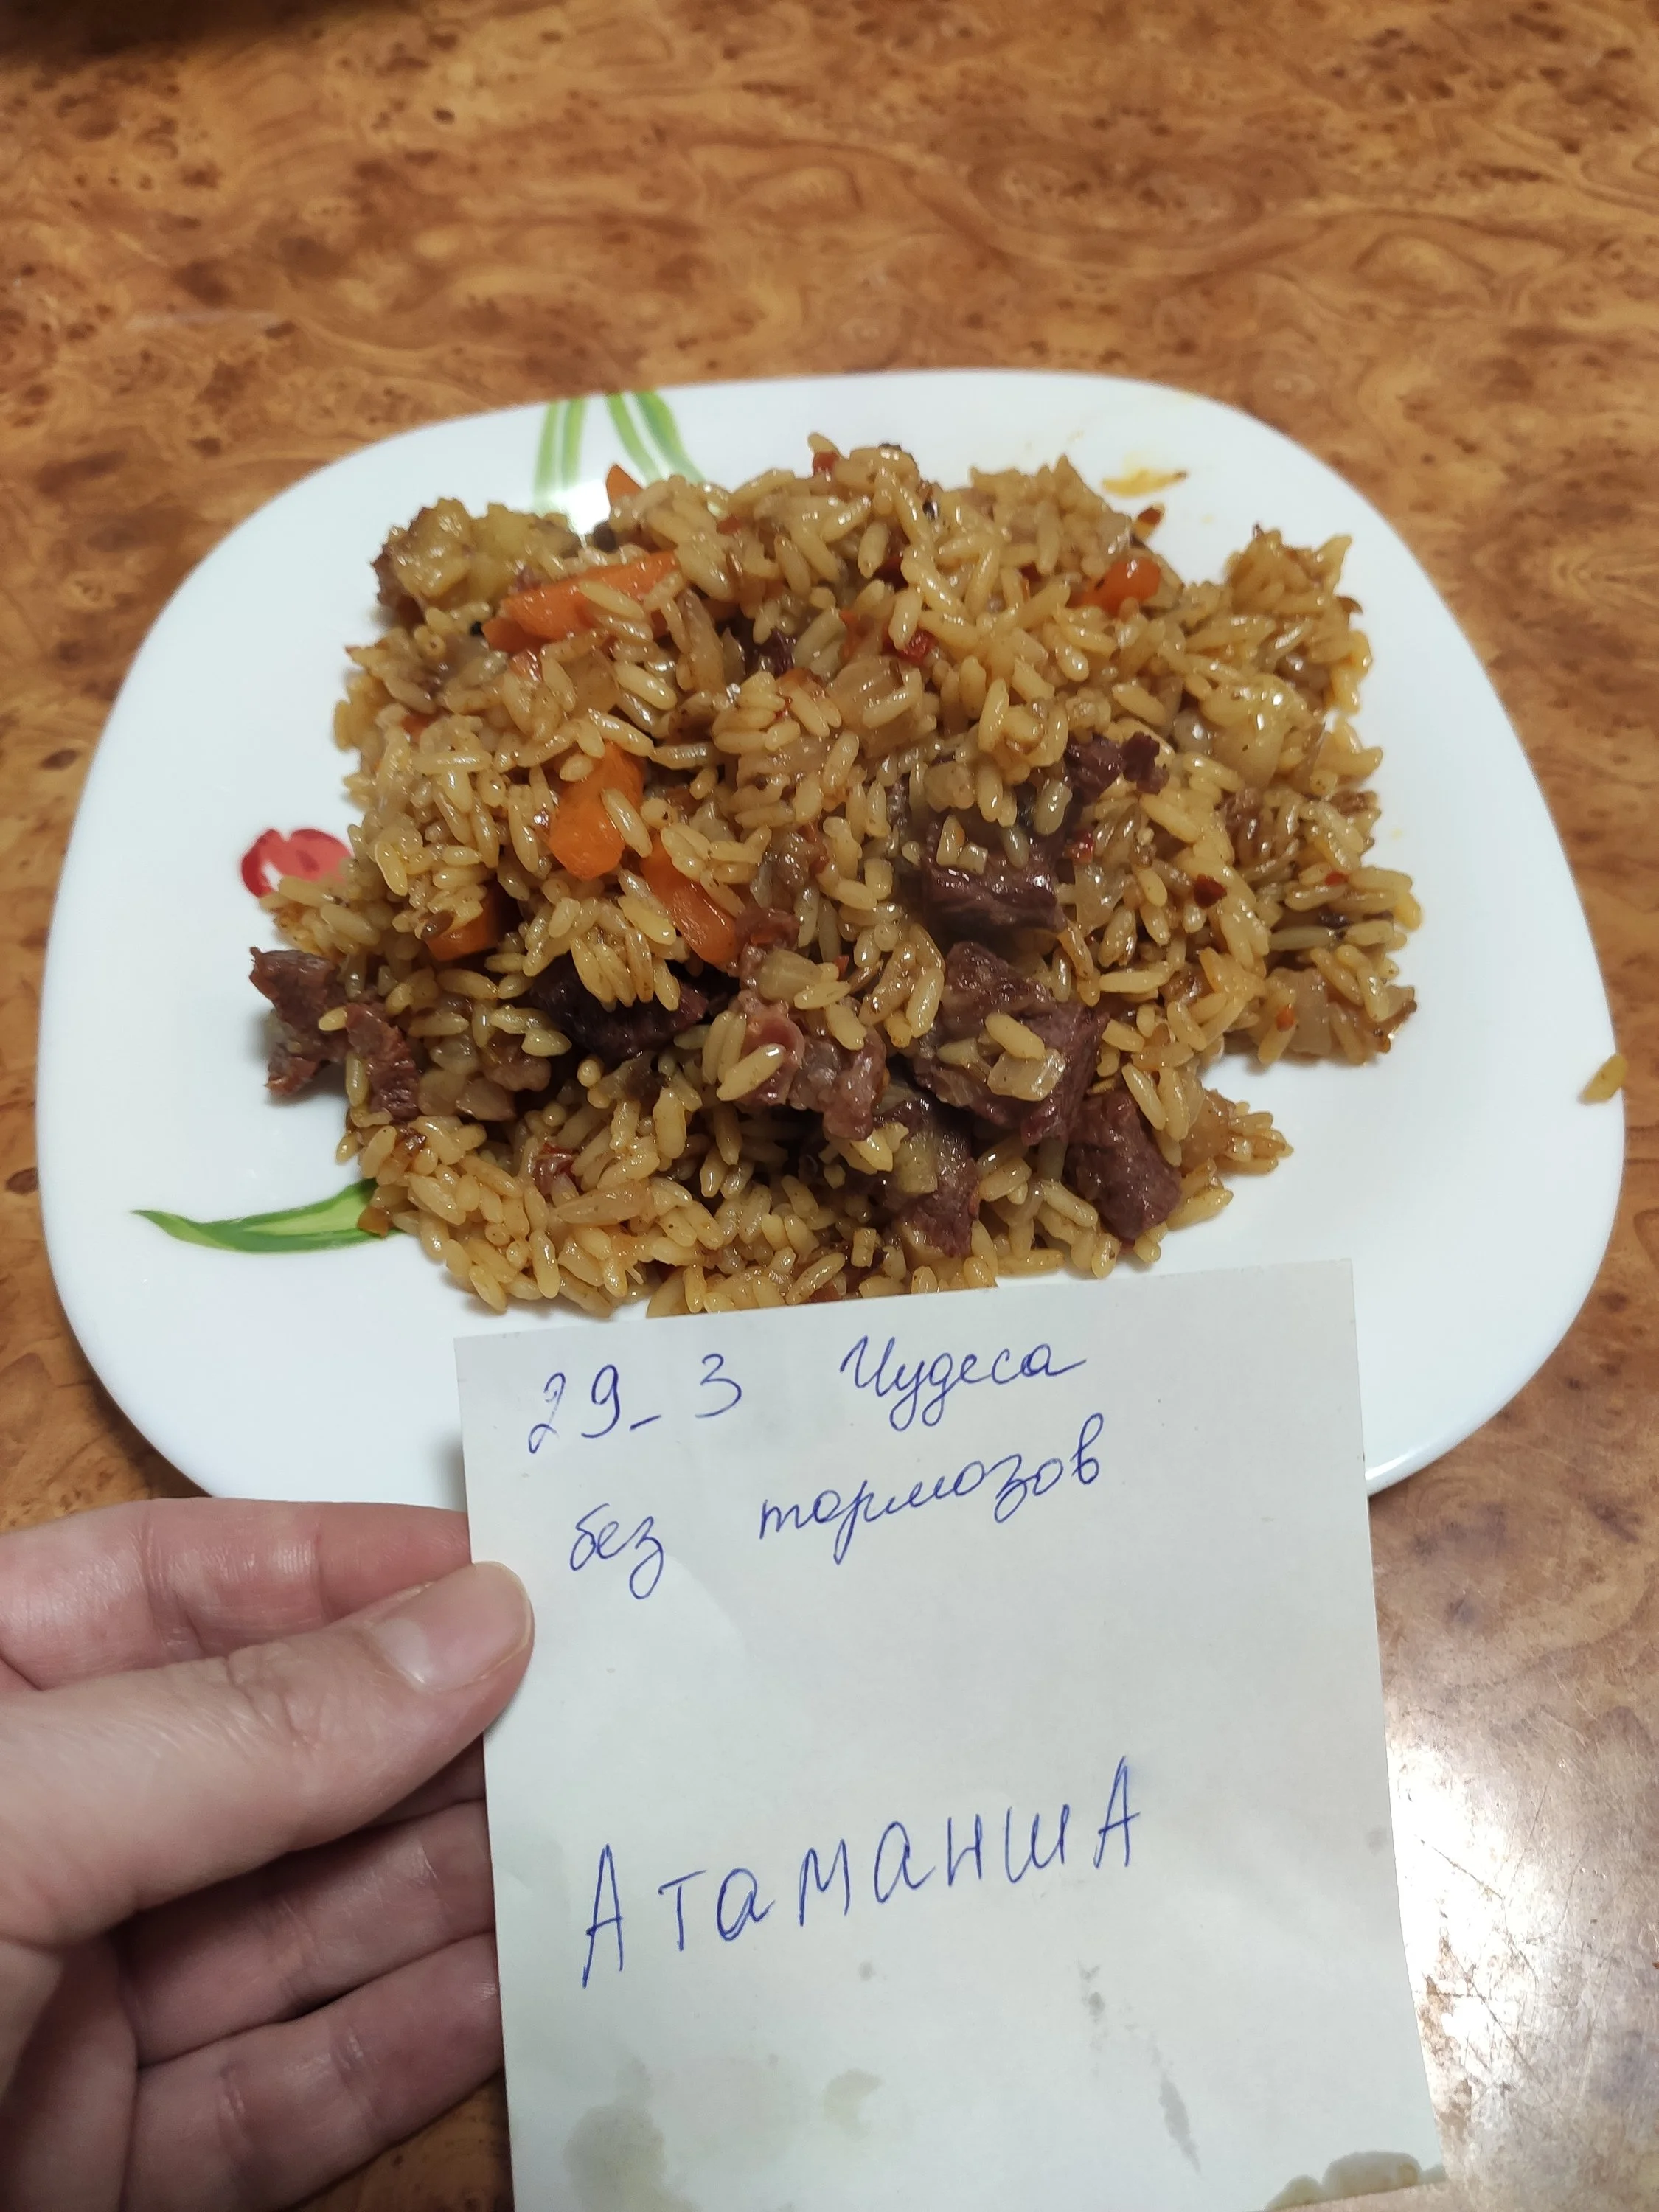 29_3 Чудеса
без тормозов
АтаманшА